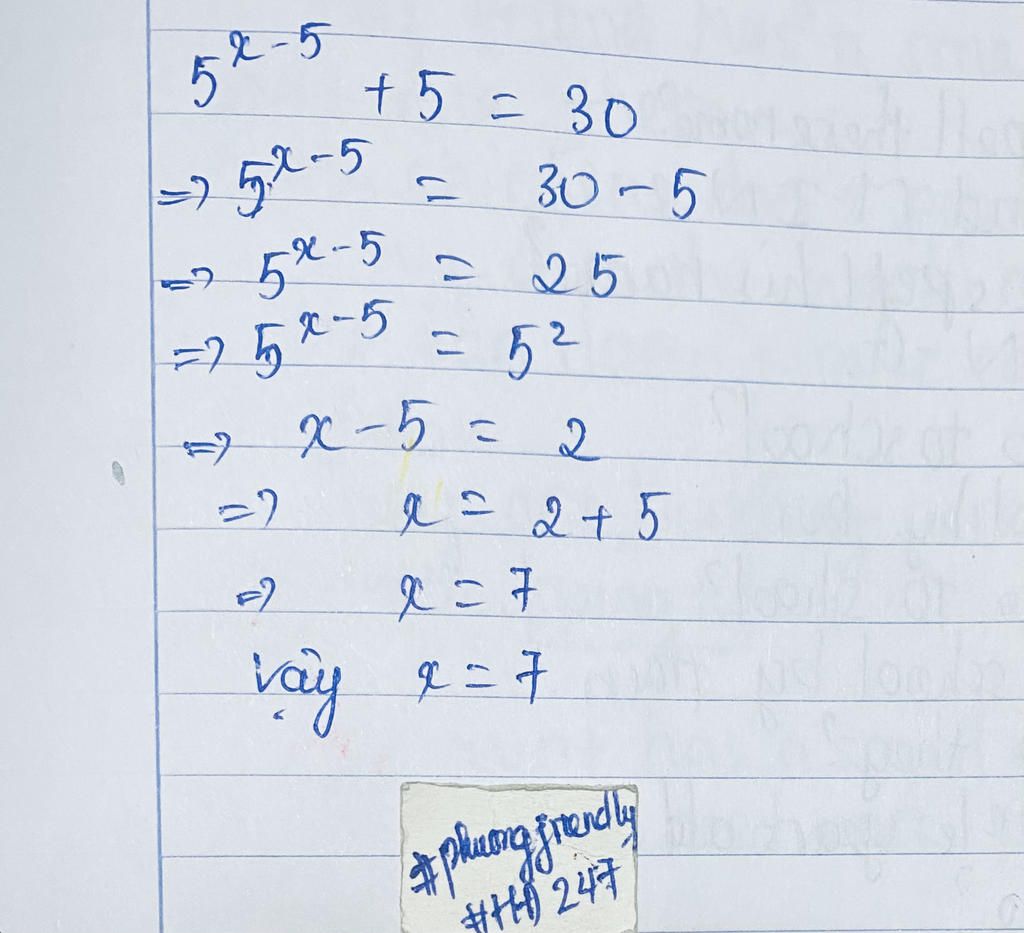 5^{x-5} + 5 = 30
=> 5^{x-5} = 30 - 5
=> 5^{x-5} = 25
=> 5^{x-5} = 5²
=> x - 5 = 2
=> x = 2 + 5
=> x = 7
Vậy x = 7
#phuongfriendly
#HĐ 247